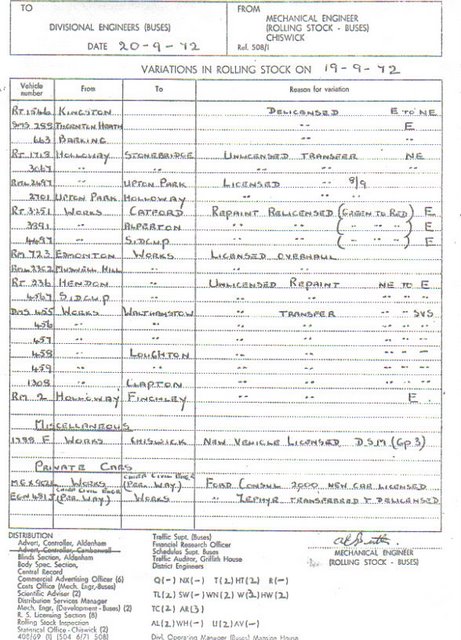 TO
DIVISIONAL ENGINEERS (BUSES)
DATE 20-9-72
FROM
MECHANICAL ENGINEER
(ROLLING STOCK - BUSES)
CHISWICK
Ref. 508/1
VARIATIONS IN ROLLING STOCK ON 19-9-72
Vehicle number From To Reason for variation
RT 1566 KINGSTON DELICENSED E TO NE
SMS 288 THORNTON HEATH -- E
663 BARKING -- --
RT 1718 HOLLOWAY STONEBRIDGE UNLICENSED TRANSFER NE
3067 -- -- -- -- --
RML 2697 -- UPTON PARK LICENSED -- 8/9
2701 UPTON PARK HOLLOWAY -- -- --
RT 3251 WORKS CATFORD REPAINT RELICENSED (GREEN TO RED) E
3391 -- ALPERTON -- -- ( -- -- -- ) E
4497 -- SIDCUP -- -- ( -- -- -- ) E
RM 723 EDMONTON WORKS LICENSED OVERHAUL
RML 2362 MUSWELL HILL -- -- --
RT 236 HENDON -- UNLICENSED REPAINT NE TO E
4567 SIDCUP -- -- -- -- -- --
DMS 455 WORKS WALTHAMSTOW -- TRANSFER -- -- SVS
456 -- -- -- -- -- -- --
457 -- -- -- -- -- -- --
458 -- LOUGHTON -- -- -- -- --
459 -- -- -- -- -- -- --
1308 -- CLAPTON -- -- -- -- --
RM 2 HOLLOWAY FINCHLEY -- -- E
MISCELLANEOUS
1788 F WORKS CHISWICK NEW VEHICLE LICENSED D.S.M (GP 3)
PRIVATE CARS
WORKS CHIEF CIVIL ENGR (PER. WAY) FORD CONSUL 2000 NEW CAR LICENSED
CHIEF CIVIL ENGR (PER. WAY) WORKS -- ZEPHYR TRANSFERRED & DELICENSED
DISTRIBUTION
Advert. Controller, Aldenham
Advert. Controller, Camberwell
Blinds Section, Aldenham
Body Spec. Section,
Central Record
Commercial Advertising Officer (6)
Costs Office (Mech. Engr.-Buses)
Scientific Adviser (2)
Distribution Services Manager
Mech. Engr. (Development - Buses) (2)
R. S. Licensing Section (6)
Rolling Stock Inspection
Statistical Office - Chiswick (2)
Traffic Supt. (Buses)
Financial Research Officer
Schedules Supt. Buses
Traffic Auditor, Griffith House
District Engineers
Q(-) NX(-) T(2) HT(2) R(-)
TL(2) SW(-) WN(2) W(2) HW(2)
TC(2) AR(3)
AL(2) WH(-) U(2) AV(-)
Divl. Operating Manager (Buses) Mansion House
MECHANICAL ENGINEER
(ROLLING STOCK - BUSES)